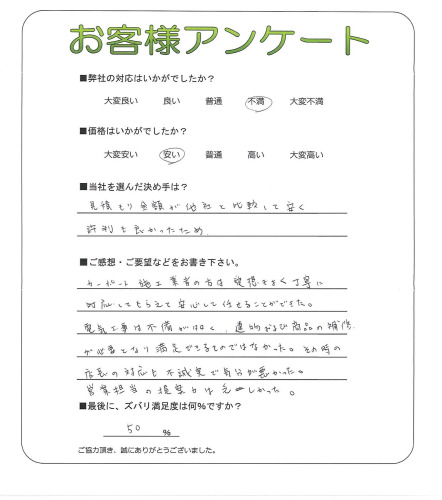 お客様アンケート
■弊社の対応はいかがでしたか？
大変良い　良い　普通　不満　大変不満
■価格はいかがでしたか？
大変安い　安い　普通　高い　大変高い
■当社を選んだ決め手は？
見積もり金額が他社と比較して安く
評判も良かったため
■ご感想・ご要望などをお書き下さい。
カーポート施工業者の方は愛想もよく丁寧に
対応してもらえて安心して任せることができた。
電気工事は不備が 、 および商品の補修
が必要となり満足できるものではなかった。その時の
店長の対応も不誠実で気分が悪かった。
営業担当の提案力は しかった。
■最後に、ズバリ満足度は何%ですか？
50 %
ご協力頂き、誠にありがとうございました。